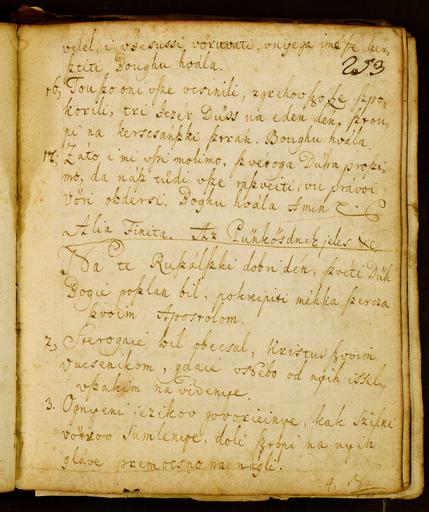 velel, i vJesussi vöruvati, vnyega iméße ker,
ßtiti Boughu hvála.
253
16, Tou ßo oni vße vcsinili, zgrehov ße ßpo,
korili, tri Jezér Düss na eden den, ßtou,
pi na kerscsánßki ßtrán. Boughu hvála.
17, Záto i mi vßi molimo, ßvetoga Dühá proßi,
mo, da náß tüdi vße raßveiti, vu právoi
vöri obdersi, Boghu hvála Amen
Alia Finita. Az Pünkösdnek jeles &c
Na te Rußálßki dobri dén, ßvéti Düh
Bogié poßlan bil, pokreipiti mehka ßercza
ßvoim Apostolom.
2, Steroga ie bil obecsal, Kristus ßvoim
vucsenikom, gda ie vNébo od nyih issel,
vßakim na videnye.
3. Ognyeni jezikov govorieinye, kak ßzilni
vötrov sumlenye, doli ßtopi na nyih
gláve premocsno na nágli.
4. Na